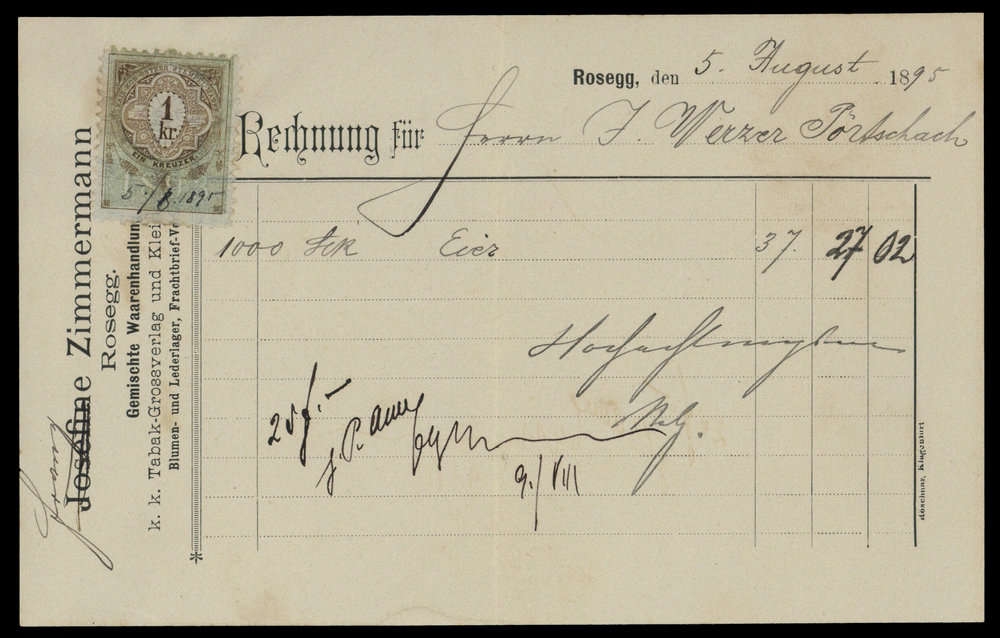 Rosegg, den 5. August 1895
Rechnung für Herrn J. Werzer Pörtschach
1 kr.
EIN KREUZER
5./8. 1895
Josefine Zimmermann
Rosegg.
Gemischte Waarenhandlung
k. k. Tabak-Grossverlag und Klei
Blumen- und Lederlager, Frachtbrief-Ve
1000 Stk Eier 37. 27 02
Hochachtungsvoll
25 f. –
9./VIII
Klagenfurt